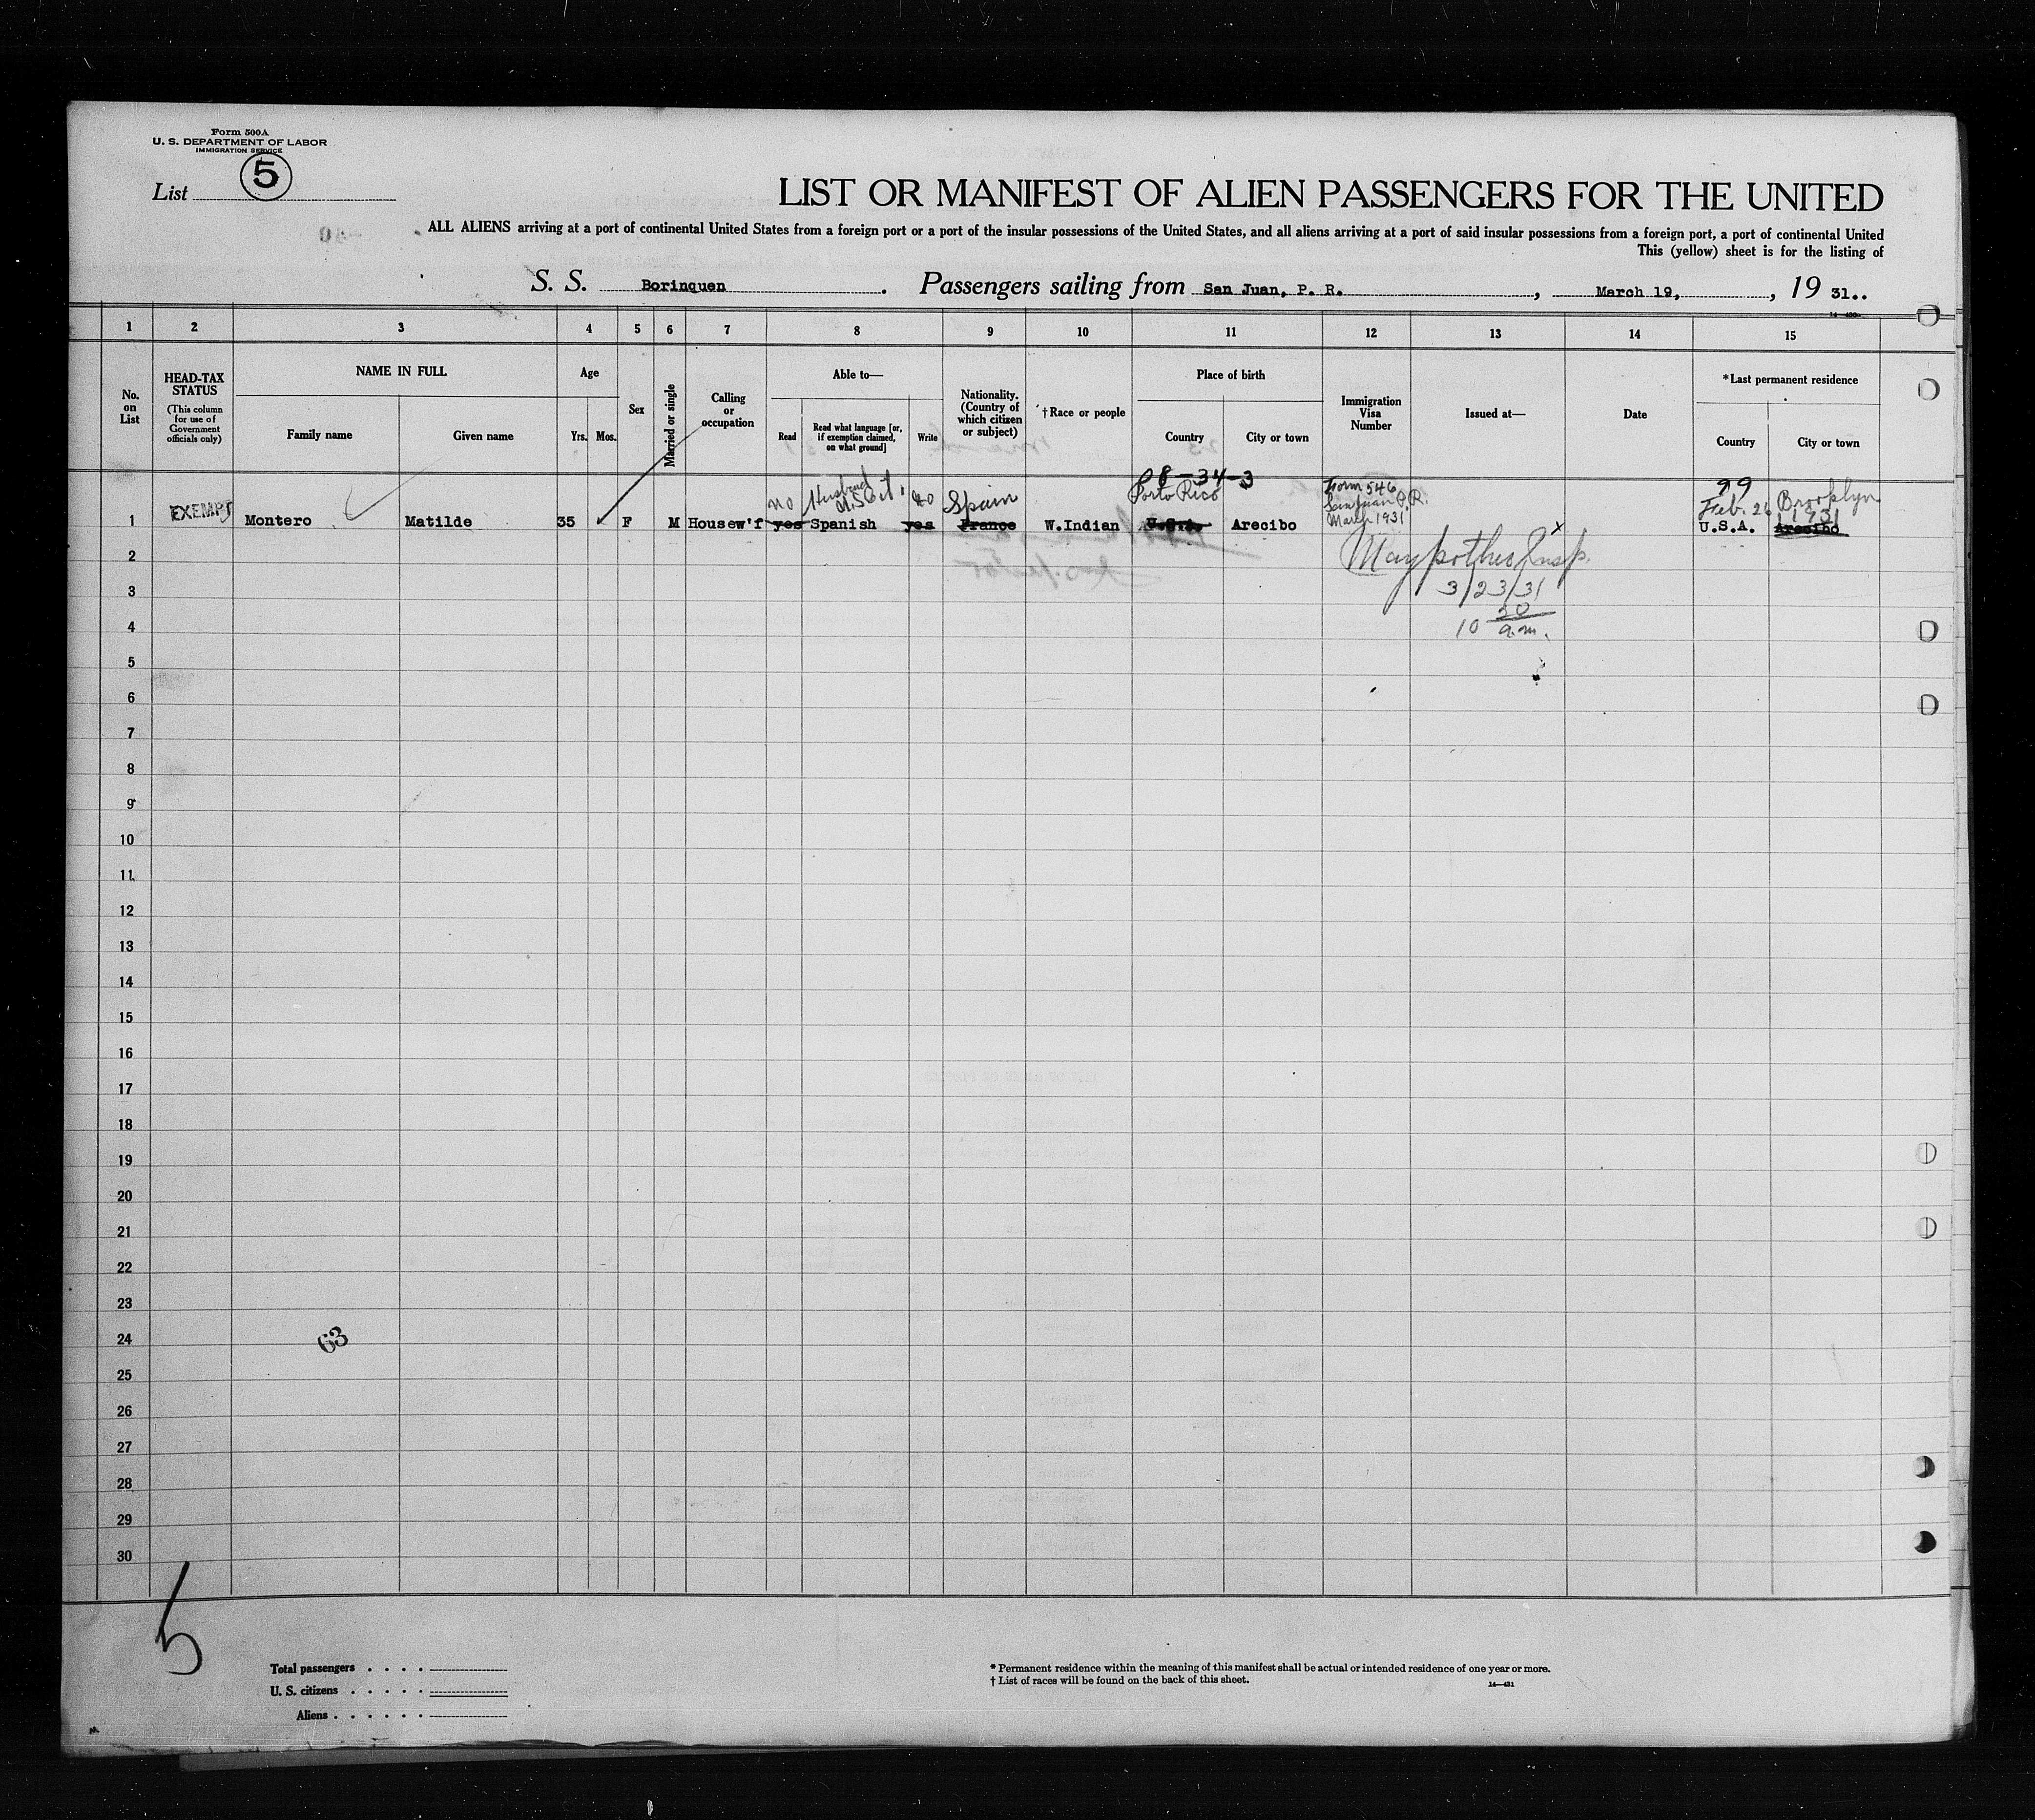 Form 500A
U. S. DEPARTMENT OF LABOR
IMMIGRATION SERVICE
List 5
LIST OR MANIFEST OF ALIEN PASSENGERS FOR THE UNITED
ALL ALIENS arriving at a port of continental United States from a foreign port or a port of the insular possessions of the United States, and all aliens arriving at a port of said insular possessions from a foreign port, a port of continental United
This (yellow) sheet is for the listing of
S. S. Borinquen. Passengers sailing from San Juan, P. R., March 19, , 19 31..
1 2 3 4 5 6 7 8 9 10 11 12 13 14 15
No. on List
HEAD-TAX STATUS
(This column for use of Government officials only)
NAME IN FULL
Family name Given name
Age
Yrs. Mos.
Sex
Married or single
Calling or occupation
Able to—
Read
Read what language [or, if exemption claimed, on what ground]
Write
Nationality. (Country of which citizen or subject)
†Race or people
Place of birth
Country City or town
Immigration Visa Number
Issued at—
Date
*Last permanent residence
Country City or town
08-34-3
99
no Husband U.S. Cit. no Spain Porto Rico Form 546 San Juan P.R. March 1931 Feb. 26 1931 Brooklyn
1 EXEMPT Montero Matilde 35 F M Housew'f yes Spanish yes France W.Indian U.S.A. Arecibo U.S.A. Arecibo
x
2
3
3/23/31
4
10 30 a.m.
5
6
7
8
9
10
11
12
13
14
15
16
17
18
19
20
21
22
23
24
63
25
26
27
28
29
30
5
Total passengers . . . .
U. S. citizens . . . . .
Aliens . . . . . .
* Permanent residence within the meaning of this manifest shall be actual or intended residence of one year or more.
† List of races will be found on the back of this sheet.
14—431